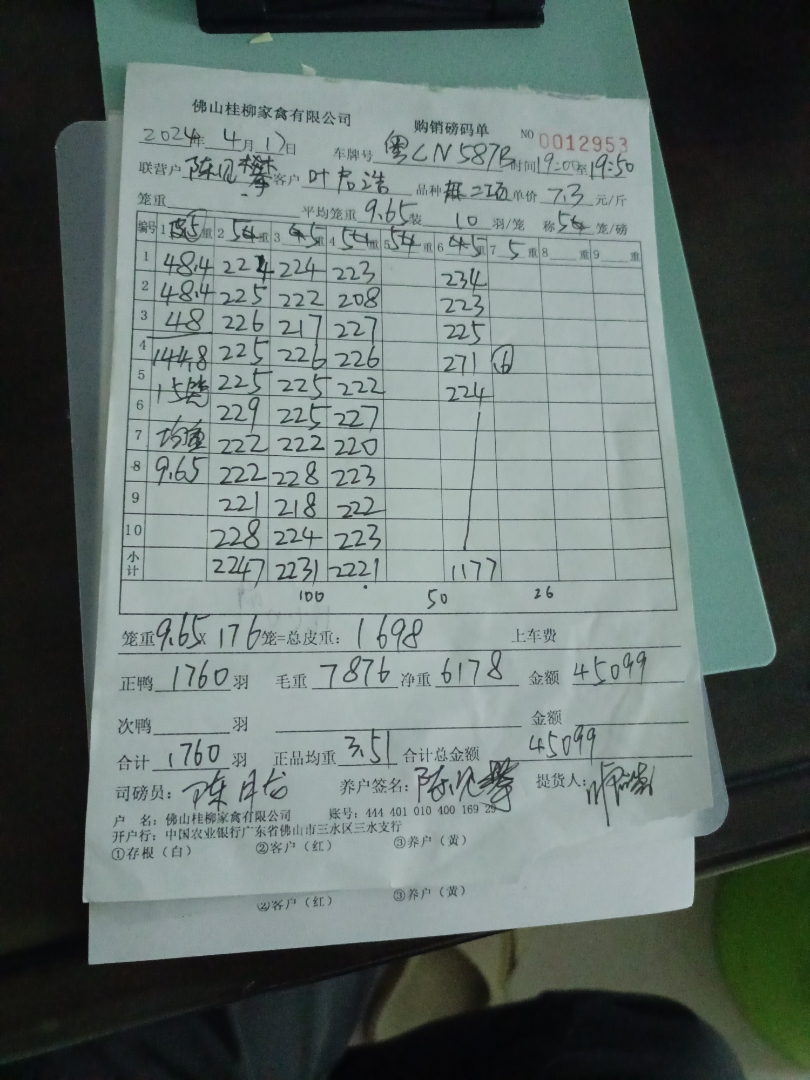 佛山桂柳家禽有限公司 购销磅码单 NO 0012953
2024年 4月 17日 车牌号 粤LN587B 时间19:00至19:50
联营户 陈 客户 叶 浩 品种 二项 单价 7.3 元/斤
笼重 平均笼重 9.65 装 10 羽/笼 称 5 笼/磅
编号 1 5 重 2 5 重 3 5 重 4 5 重 5 重 6 5 重 7 5 重 8 重 9 重
1 48.4 224 224 223 234
2 48.4 225 222 208 223
3 48 226 217 227 225
4 144.8 225 226 226 271 ⑥
5 15笼 225 225 222 224
6 229 225 227
7 均重 222 222 220
8 9.65 222 228 223
9 221 218 222
10 228 224 223
小计 2247 2231 2221 1177
100 50 26
笼重9.65×176笼=总皮重:1698 上车费
正鸭 1760 羽 毛重 7876 净重 6178 金额 45099
次鸭 羽 金额
合计 1760 羽 正品均重 3.51 合计总金额 45099
司磅员: 陈 养户签名: 陈 提货人:
户 名:佛山桂柳家禽有限公司 账号:444 401 010 400 169 29
开户行:中国农业银行广东省佛山市三水区三水支行
①存根(白) ②客户(红) ③养户(黄)
②客户(红) ③养户(黄)